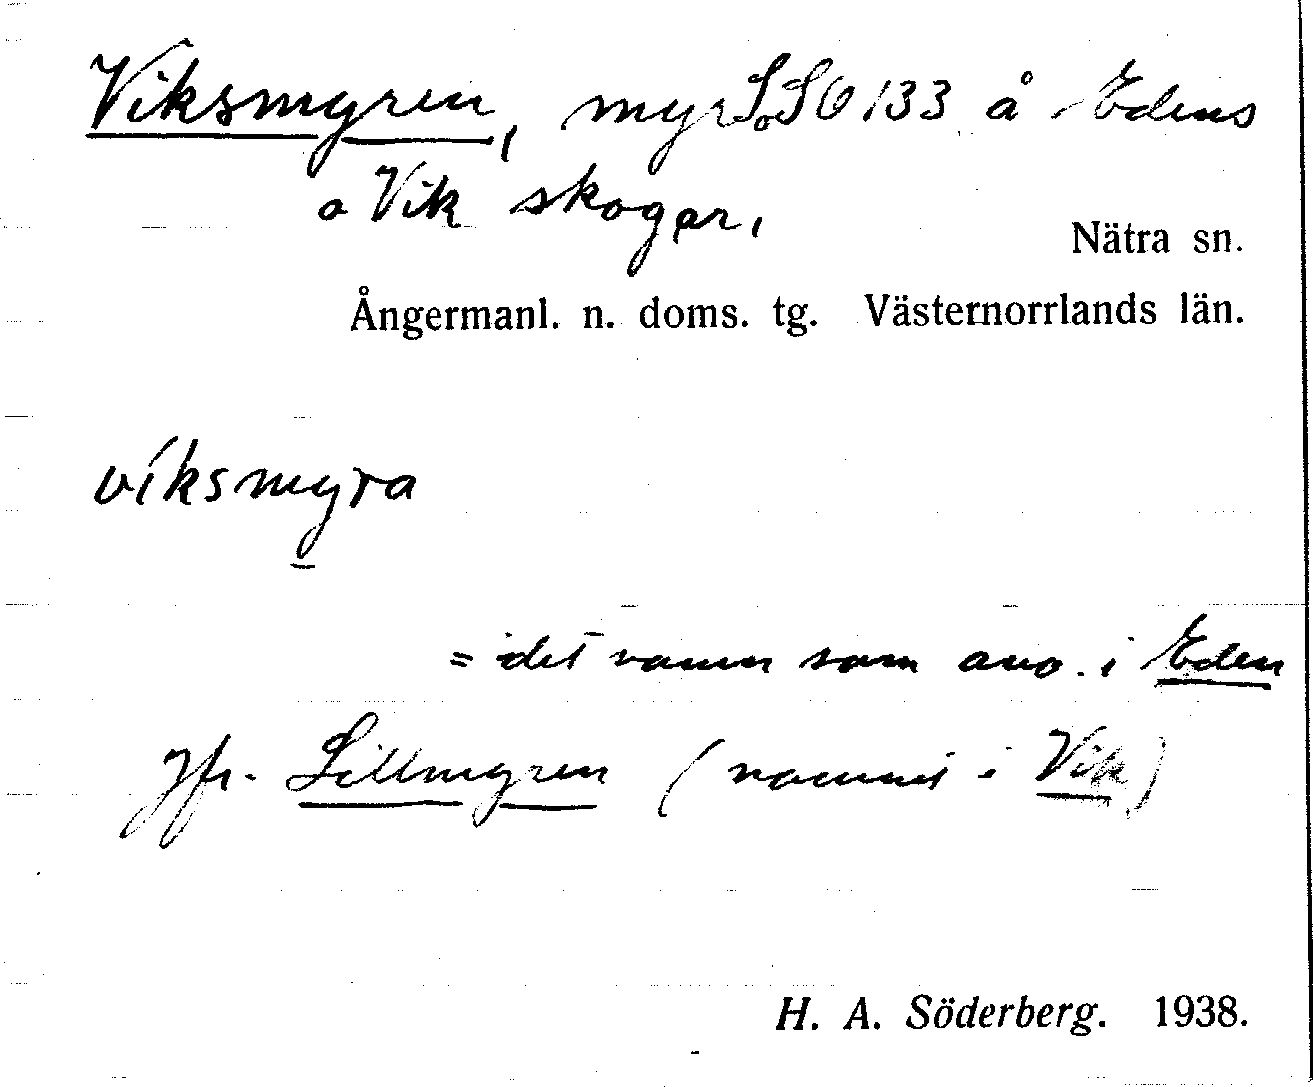 Viksmyren, myr S.SO 133 å Edens
o Vik skogar,
Nätra sn.
Ångermanl. n. doms. tg. Västernorrlands län.
víksmyra
= det namn som anv. i Eden
Jfr. Lillmyren (namnet i Vik)
H. A. Söderberg. 1938.